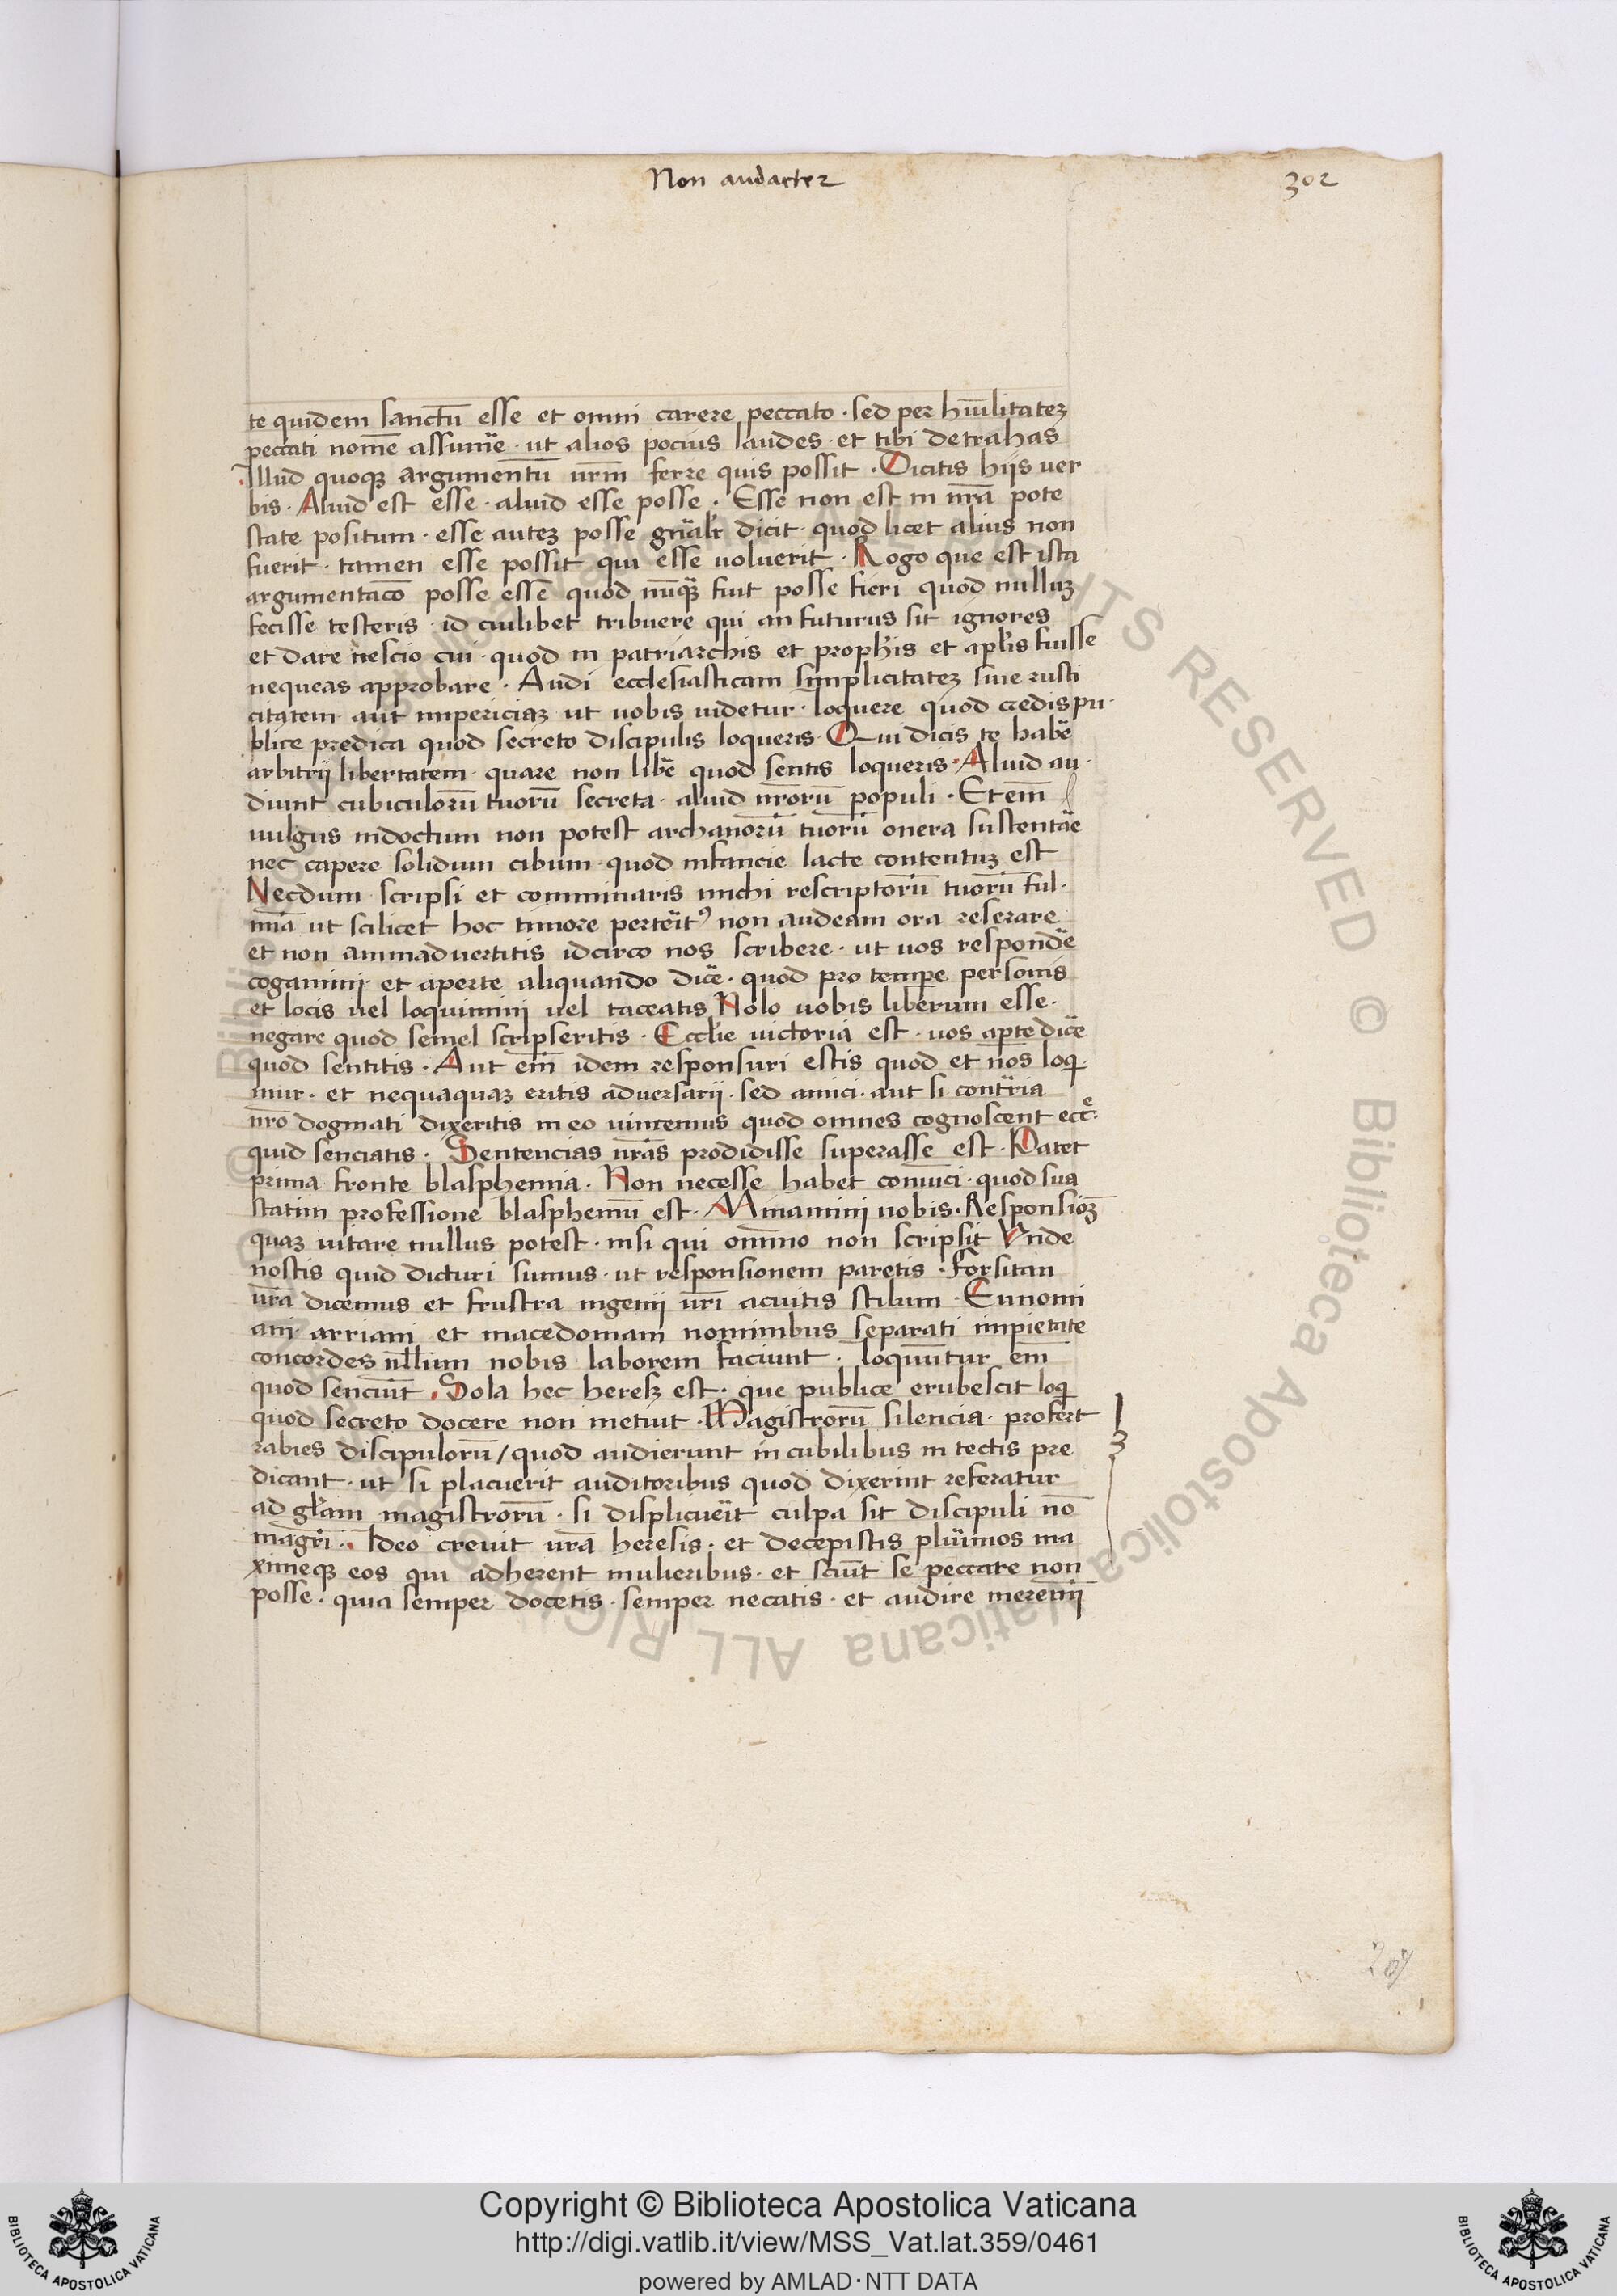 Non audacter
302
te quidem sanctū esse et omni carere peccato · sed per hūilitatez
peccati nomē assumē · ut alios pocius laudes · et tibi detrahas
Illud quoqꝫ argumentū urm̄ ferre quis possit · Dicitis hijs uer
bis · Aliud est esse · aliud esse posse · Esse non est in nrā pote
state positum · esse autez posse gn̄alr dicit · quod licet alius non
fuerit · tamen esse possit qui esse uoluerit · Rogo que est ista
argumentac̄o posse esse quod nūqꝫ fuit posse fieri quod nulluz
fecisse testeris · id cuilibet tribuere qui an futurus sit ignores
et dare nescio cui · quod in patriarchis et prophīs et apl̄is fuisse
nequeas approbare · Audi ecclesiasticam simplicitatez siue rusti
citatem aut impericiaz ut uobis uidetur · loquere quod credis pu
blice predica quod secreto discipulis loqueris · Qui dicis te habē
arbitrij libertatem · quare non libē quod sentis loqueris · Aliud au
diunt cubiculorū tuorū secreta · aliud nrōrū populi · Etem̄
uulgus indoctum non potest archanorū tuorū onera sustentāe
nec capere solidum cibum · quod infancie lacte contentuz est
Necdum scripsi et comminaris michi rescriptorū tuorū ful
mīa ut scilicet hoc timore perteīt⁹ non audeam ora reserare
et non animaduertitis idcirco nos scribere · ut uos respondē
cogamini · et aperte aliquando dicē · quod pro tempe personis
et locis uel loquimini uel taceatis Nolo uobis liberum esse ·
negare quod semel scripseritis · Eccl̄ie uictoria est · uos apte dicē
quod sentitis · Aut em̄ idem responsuri estis quod et nos loqi
mur · et nequaquaz eritis aduersarij · sed amici · aut si contr̄ria
nrō dogmati dixeritis in eo uincemus quod omnes cognoscent ecc̄ᵉ
quid senciatis · Sentencias urās prodidisse superasse est · Patet
prima fronte blasphemia · Non necesse habet conuīci · quod sua
statim professione blasphemū est · Minamini nobis · Responsiōꝫ
quaz uitare nullus potest · nisi qui omīno non scripsit Vnde
nostis quid dicturi sumus · ut responsionem paretis · Forsitan
urā dicemus et frustra ingenij urī acuitis stilum · Eunomi
ani arriani et macedoniani nominibus separati impietate
concordes nl̄lum nobis laborem faciunt · loquūtur em̄
quod senciūt · Sola hec heresꝫ est · que publice erubescit loqi
quod secreto docere non metiut · Magistrorū silencia · profert
rabies discipulorū / quod audierunt in cubilibus in tectis pre
dicant · ut si placuerit auditoribus quod dixerint referatur
ad glr̄am magistrorū · si displicueīt culpa sit discipuli nō
magr̄i · Ideo creuit urā heresis · et decepistis plūimos ma
ximeqꝫ eos qui adherent mulieribus · et sciūt se peccare non
posse · quia semper docetis · semper necatis · et audire meremī
Copyright © Biblioteca Apostolica Vaticana
http://digi.vatlib.it/view/MSS_Vat.lat.359/0461
powered by AMLAD·NTT DATA
BIBLIOTECA APOSTOLICA VATICANA
BIBLIOTECA APOSTOLICA VATICANA
© Biblioteca Apostolica Vaticana ALL RIGHTS RESERVED